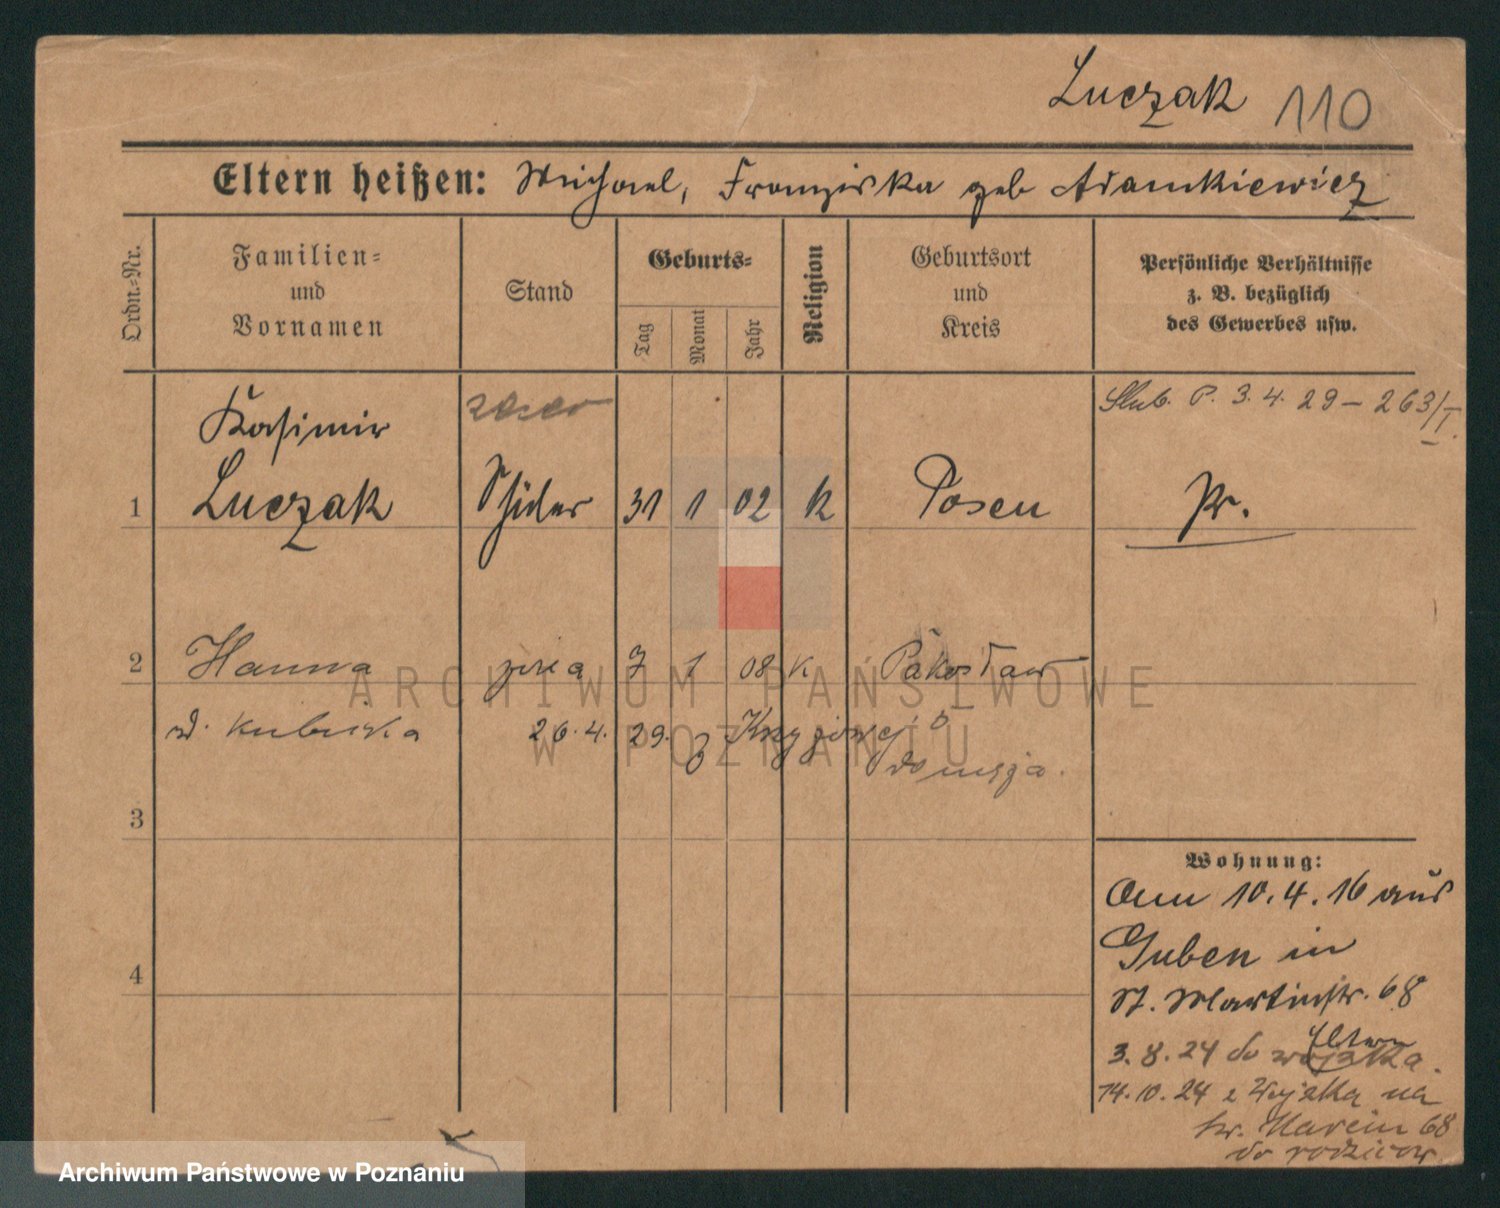 Luczak 110
Eltern heißen: Michael, Franziska geb Adamkiewicz
Ordn.-Nr.
Familien-
und
Vornamen
Stand
Geburts-
Tag
Monat
Jahr
Religion
Geburtsort
und
Kreis
Persönliche Verhältnisse
z. B. bezüglich
des Gewerbes usw.
Slub. P. 3.4.29 – 263/I.
Kasimir
1 Luczak Schüler 31 1 02 K Posen Pr.
2 Hanna żona 7 1 08 K Pakosław
d. Kubicka 26.4.29. z Krzyżowej 6
do męża.
3
4
Wohnung:
Am 10.4.16 aus
Guben in
St. Martinstr. 68
Eltern
3.8.24 do wojska.
14.10.24 z Wojska na
św. Marcin 68
do rodziców.
ARCHIWUM PAŃSTWOWE
W POZNANIU
Archiwum Państwowe w Poznaniu